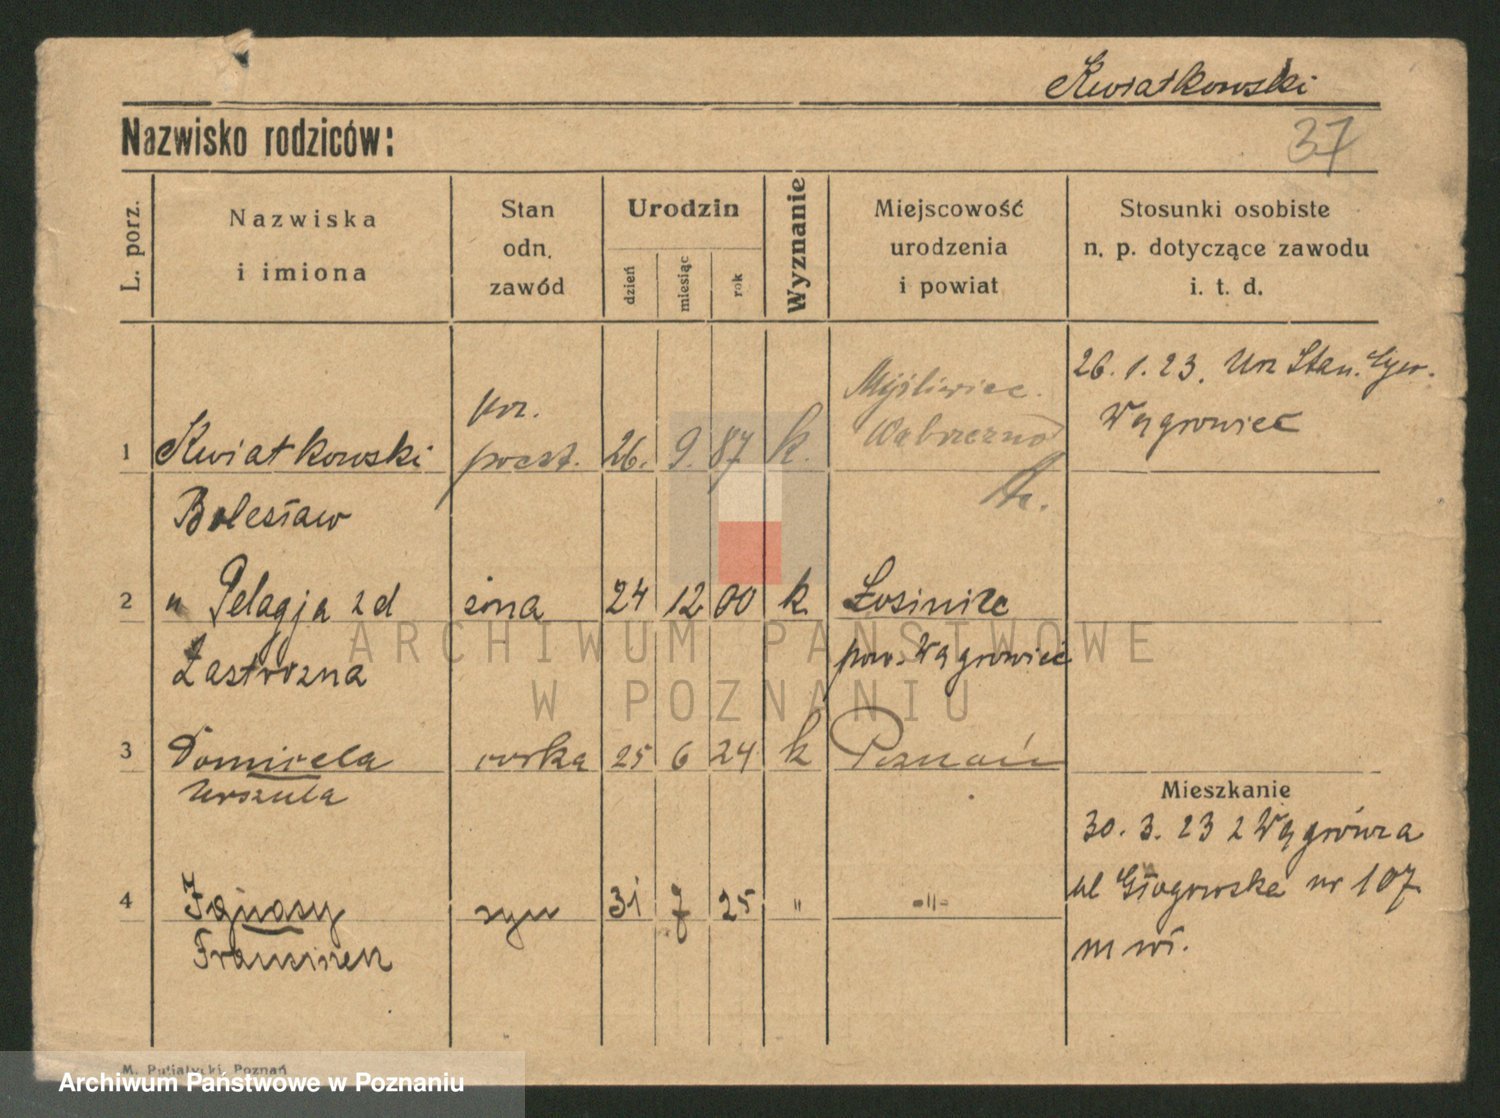 Kwiatkowski
Nazwisko rodziców:
37
L. porz.
Nazwiska
i imiona
Stan
odn.
zawód
Urodzin
dzień
miesiąc
rok
Wyznanie
Miejscowość
urodzenia
i powiat
Stosunki osobiste
n. p. dotyczące zawodu
i. t. d.
1 Kwiatkowski poczt. 26. 9. 87 k. Myśliwiec. Wąbrzeźno 26. 1. 23. Urz Stan. Cyw.
Wągrowiec
Bolesław
2 " Pelagja z d żona 24 12 00 k Łosiniec
Zastrożna pow. Wągrowiec
3 Domicela corka 25 6 24 k Poznań
Urszula
Mieszkanie
30. 3. 23 z Wągrówca
4 Ignacy syn 31 7 25 " -"- ul Głogowska nr 107
Franciszek m wi.
ARCHIWUM PAŃSTWOWE
W POZNANIU
M. Putiatycki, Poznań
Archiwum Państwowe w Poznaniu